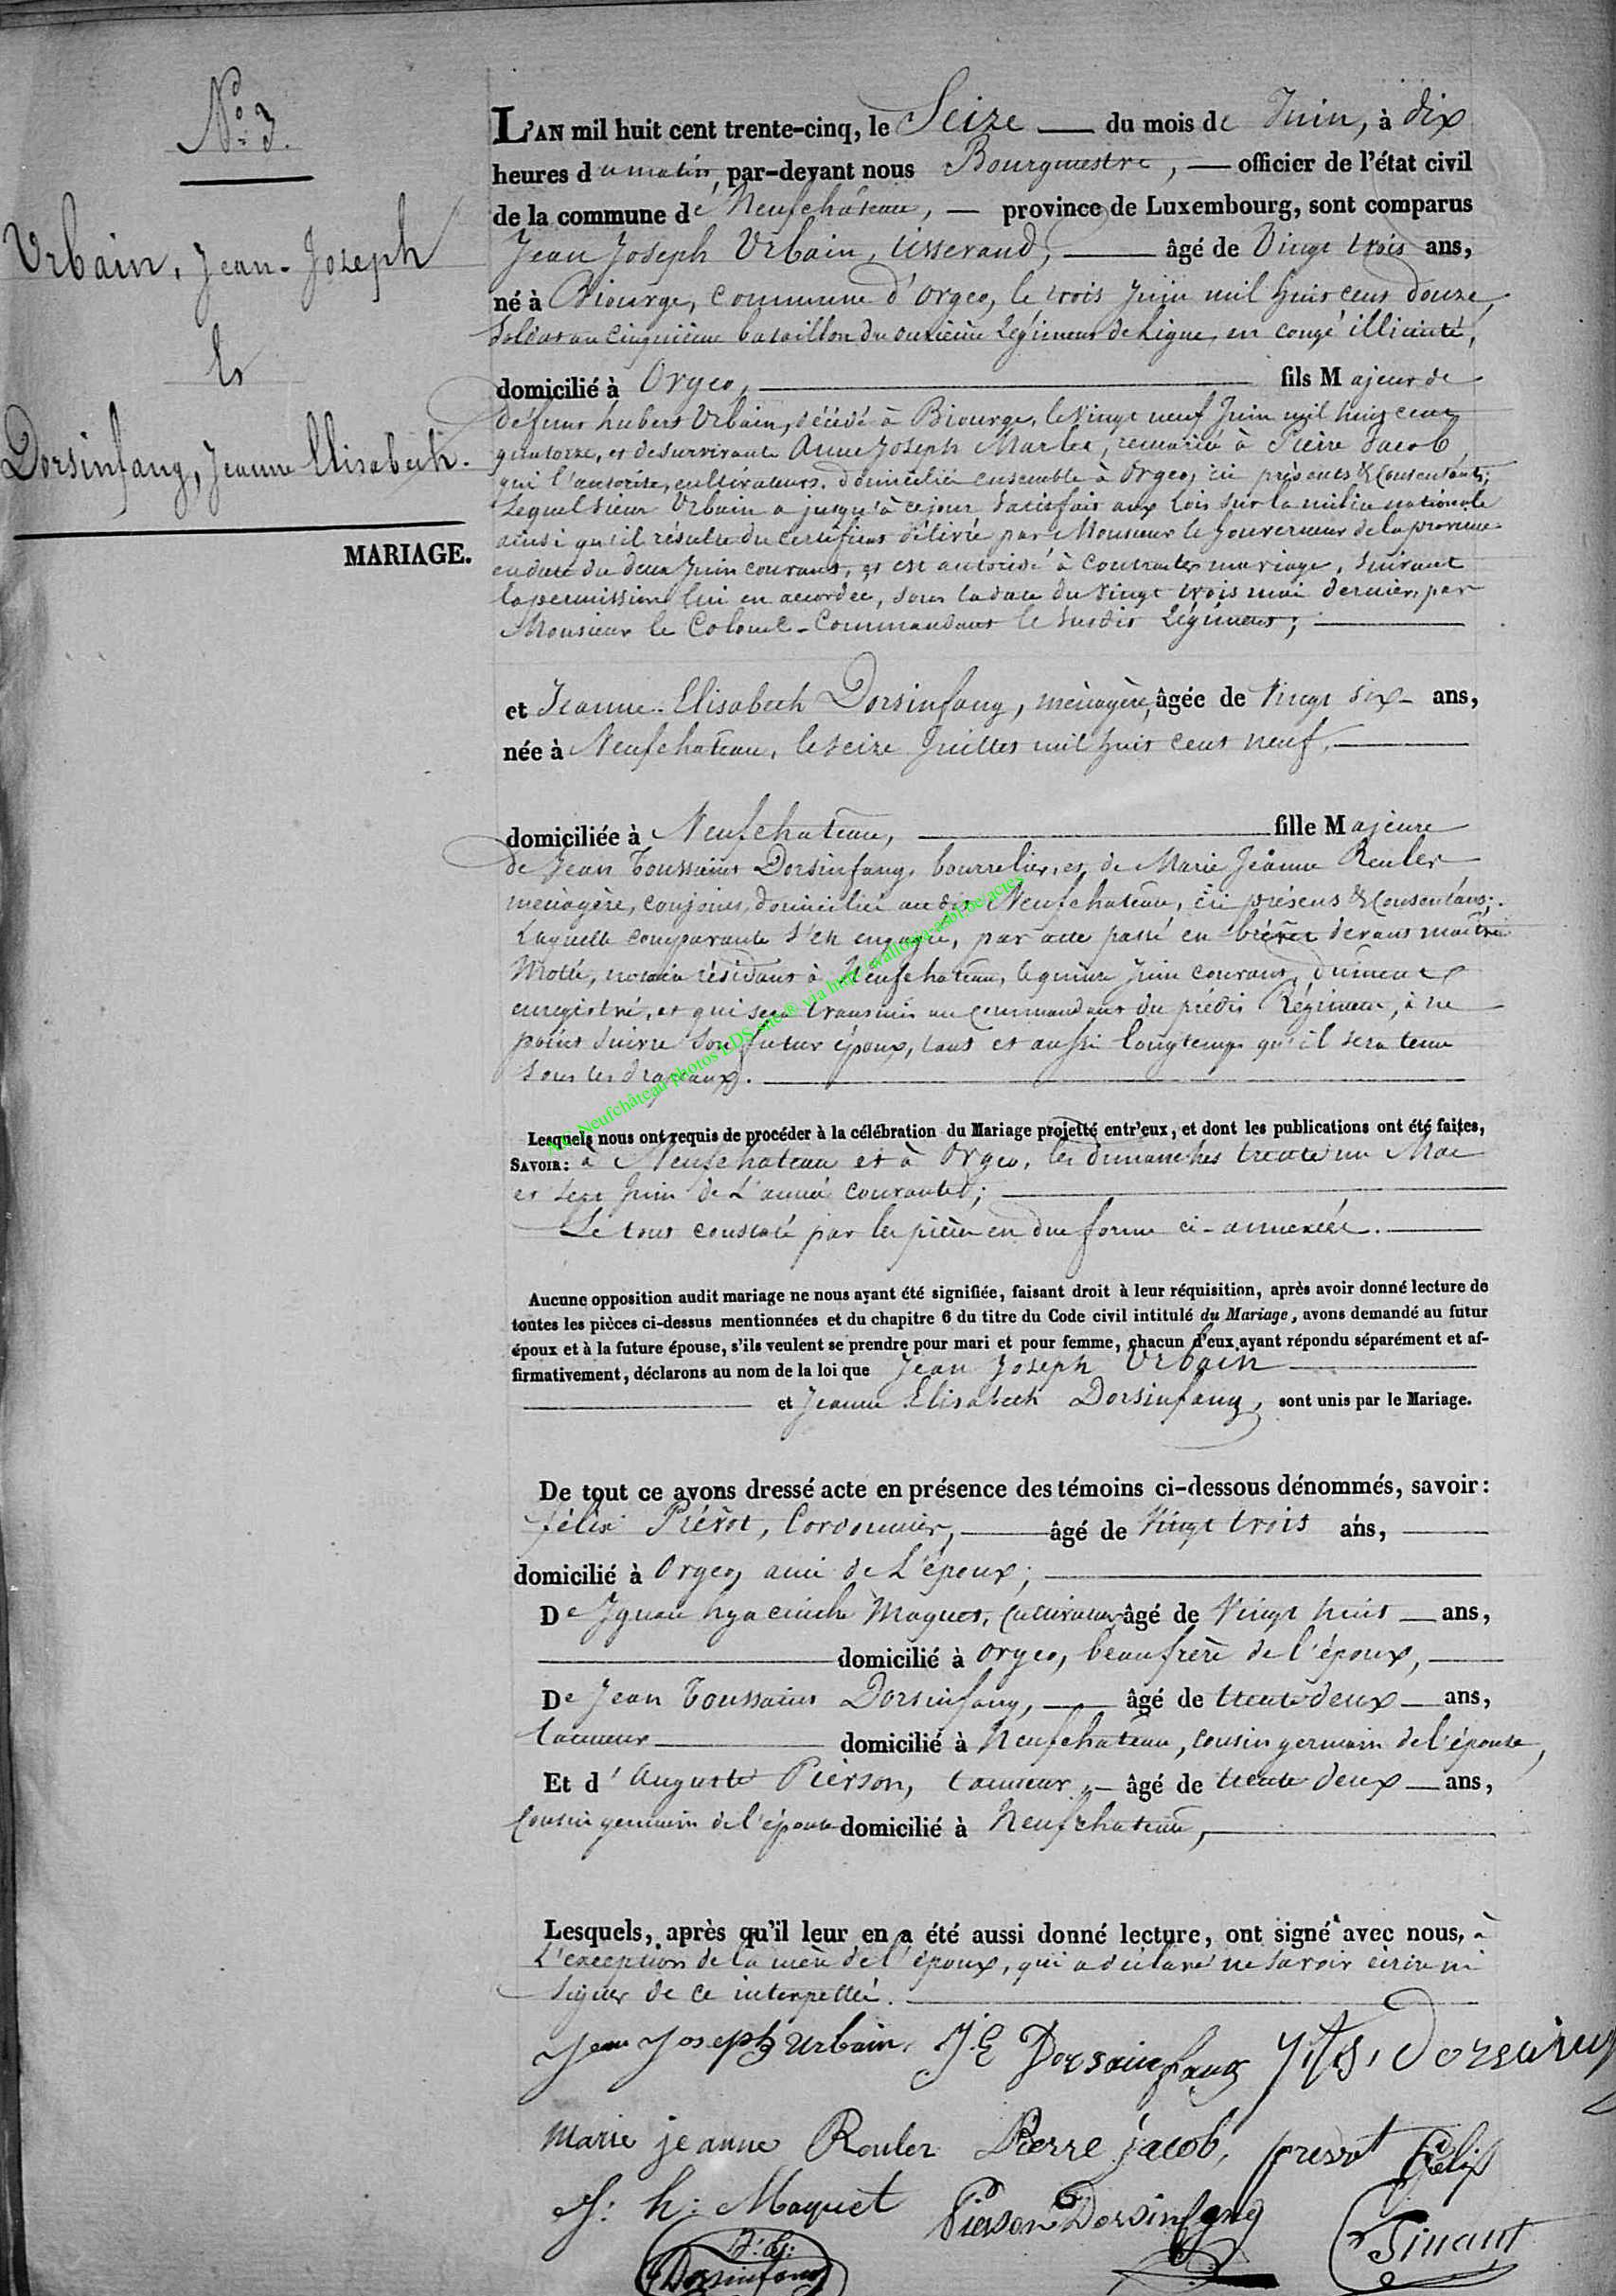 N.º 3.
Urbain, Jean-Joseph
Et
Dorsinfang, Jeanne Elisabeth.
MARIAGE.
L'AN mil huit cent trente-cinq, le Seize du mois de Juin, à dix
heures du matin, par-devant nous Bourgmestre, officier de l'état civil
de la commune de Neufchâteau, province de Luxembourg, sont comparus
Jean Joseph Urbain, tisserand, âgé de Vingt trois ans,
né à Biourge, commune d'Orgeo, le trois Juin mil huit cent douze,
Soldat au Cinquième bataillon du onzième Régiment de Ligne, en congé illimité,
domicilié à Orgeo, fils Majeur de
défunt hubert Urbain, décédé à Biourge, le Vingt neuf Juin mil huit cent
quatorze, et de survivante Anne Joseph Marlet, remariée à Pierre Jacob
qui l'autorise, cultivateurs, domiciliés ensemble à Orgeo, ici présents & Consentants;
Lequel sieur Urbain a jusqu'à ce jour satisfait aux lois sur la milice nationale
ainsi qu'il résulte du certificat délivré par Monsieur le Gouverneur de la province
en date du deux Juin courant, et est autorisé à contracter mariage, suivant
la permission lui en accordée, sous la date du Vingt trois mai dernier, par
Monsieur le Colonel-Commandant le susdit Régiment;
et Jeanne Elisabeth Dorsinfang, ménagère, âgée de Vingt six ans,
née à Neufchateau, le seize Juillet mil huit cent neuf,
domiciliée à Neufchateau, fille Majeure
de Jean Toussaint Dorsinfang, bourrelier, et de Marie Jeanne Reuler
ménagère, conjoints, domiciliés audit Neufchateau, ici présens & Consentans;
Laquelle comparante s'est engagée, par acte passé en brevet devant maître
Motté, notaire résidant à Neufchateau, le quinze Juin courant, dûment
enregistré, et qui sera transmis au commandant du prédit Régiment, à ne
point suivre son futur époux, tant et aussi longtemps qu'il sera tenu
sous les drapeaux.
AC Neufchâteau photos LDS site® via http://wallonia-asbl.be/actes
Lesquels nous ont requis de procéder à la célébration du Mariage projetté entr'eux, et dont les publications ont été faites,
SAVOIR: à Neufchateau et à Orgeo, les dimanches trente un Mai
et sept Juin de L'année courante;
Le tout constaté par les pièces en due forme ci-annexées.
Aucune opposition audit mariage ne nous ayant été signifiée, faisant droit à leur réquisition, après avoir donné lecture de
toutes les pièces ci-dessus mentionnées et du chapitre 6 du titre du Code civil intitulé du Mariage, avons demandé au futur
époux et à la future épouse, s'ils veulent se prendre pour mari et pour femme, chacun d'eux ayant répondu séparément et af-
firmativement, déclarons au nom de la loi que Jean Joseph Urbain
et Jeanne Elisabeth Dorsinfang, sont unis par le Mariage.
De tout ce avons dressé acte en présence des témoins ci-dessous dénommés, savoir:
félix Prévot, Cordonnier, âgé de Vingt trois ans,
domicilié à Orgeo, ami de L'époux;
De Ignace hyacinthe Maquet, Cultivateur âgé de Vingt huit ans,
domicilié à Orgeo, beau frère de l'époux,
De Jean Toussaint Dorsinfang, âgé de trente deux ans,
tanneur domicilié à Neufchateau, cousin germain de l'épouse,
Et d'Auguste Pierson, tanneur, âgé de trente deux ans,
Cousin germain de l'épouse domicilié à Neufchateau,
Lesquels, après qu'il leur en a été aussi donné lecture, ont signé avec nous, à
L'exception de la mère de l'époux, qui a déclaré ne savoir écrire ni
signer de ce interpellée.
Jean Joseph Urbain, J.E Dorsainfang
Marie jeanne Rouler Pierre jacob, prevot Félix
J: h: Maquet Pierson Dorsinfang Tinant
Dorsinfang